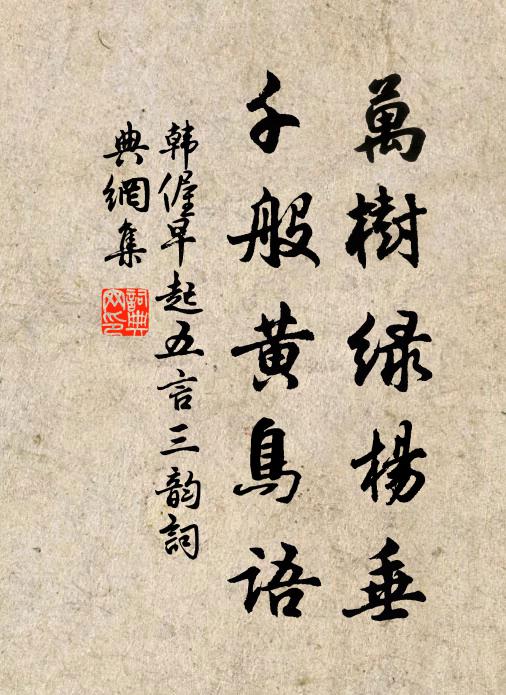 萬樹緑楊垂
千般黄鳥語
韩偓早起五言三韵詞
典網集
詞典
网印